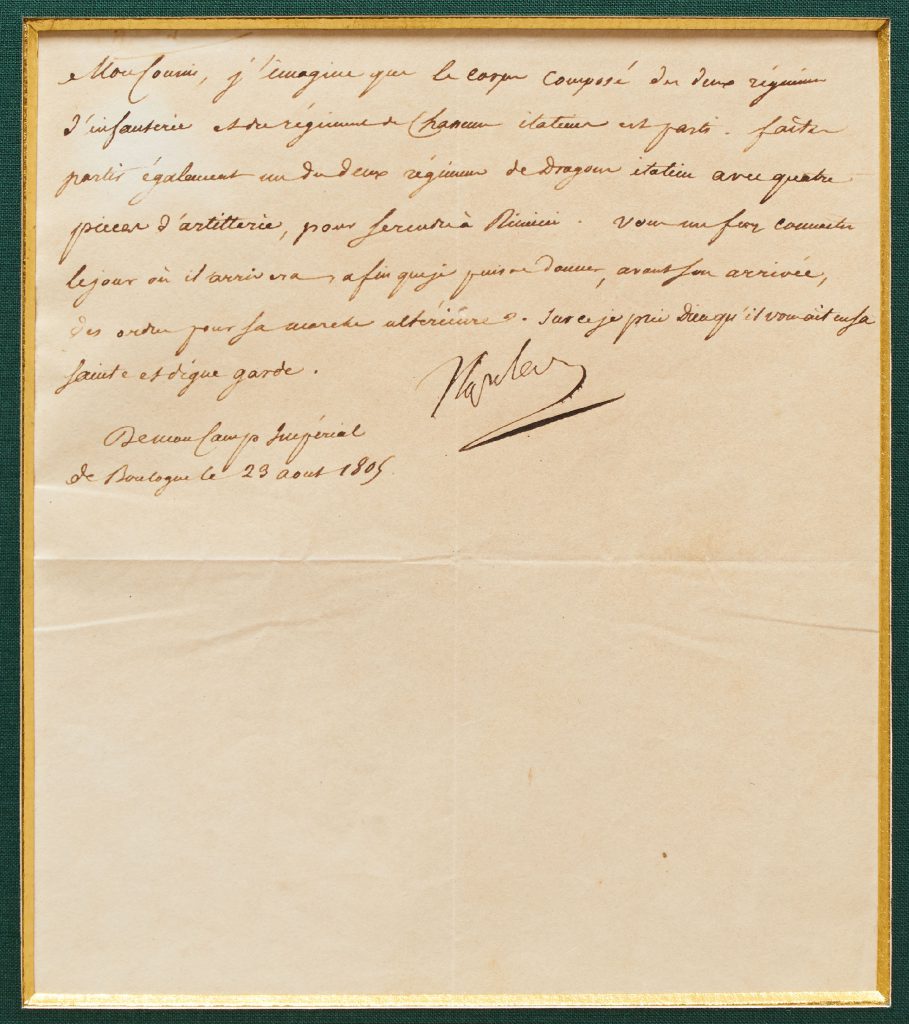 Mon Cousin, j'imagine que le corps composé des deux régimens
d'infanterie et du régiment de Chasseurs italiens est parti. faites
partir également un des deux régimens de Dragons italiens avec quatre
pièces d'artillerie, pour se rendre à Rimini. Vous me ferez connaitre
le jour où il arrivera, afin que je puisse donner, avant son arrivée,
des ordres pour sa marche ultérieure. Sur ce je prie Dieu qu'il vous ait en sa
sainte et digne garde.
Napoleon
De mon Camp Impérial
de Boulogne le 23 aout 1805